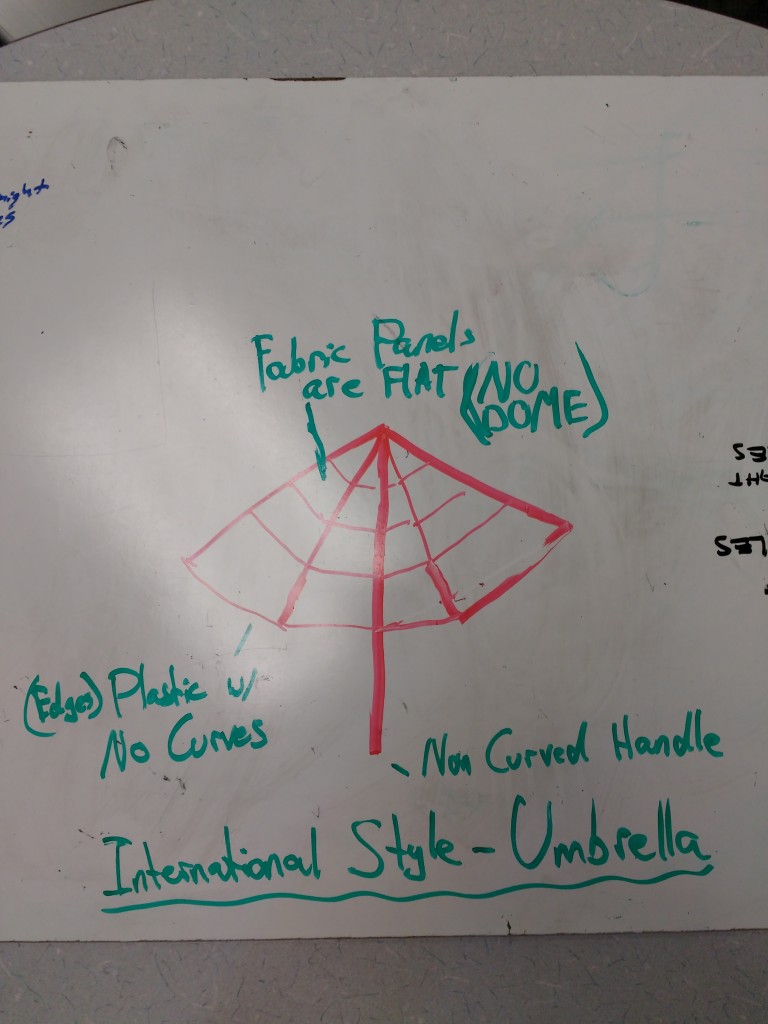 Fabric Panels
are FLAT (NO
DOME)
(Edges) Plastic w/
No Curves
Non Curved Handle
International Style - Umbrella